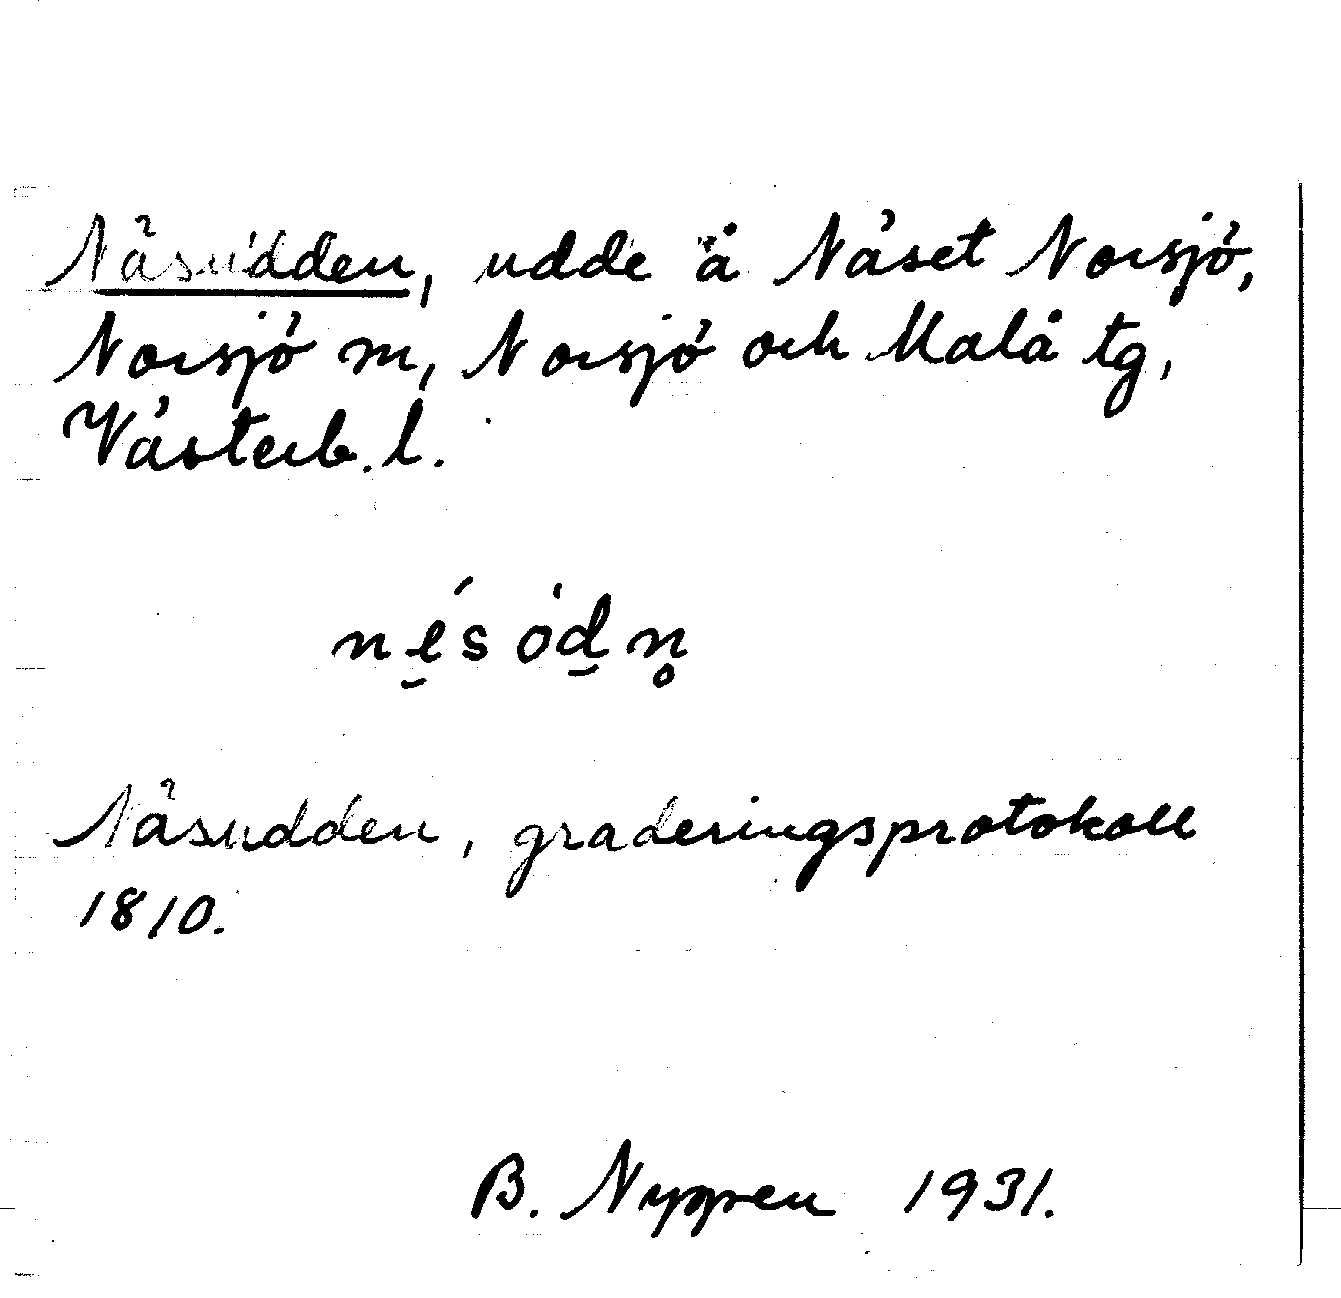 Näsudden, udde å Näset Norsjö,
Norsjö m, Norsjö och Malå tg,
Västerb. l.
nés òdn̥
Näsudden, graderingsprotokoll
1810.
B. Nygren 1931.